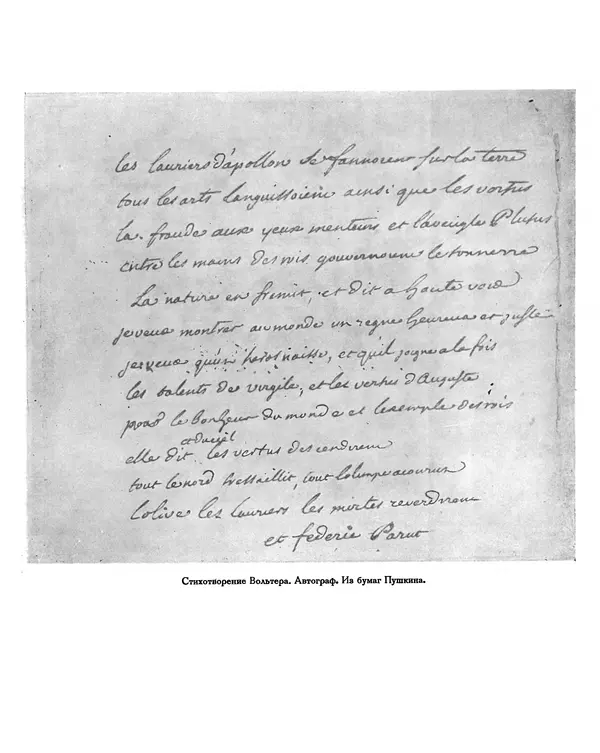 les lauriers d'apollon se fannoient sur la terre
tous les arts languissoient ainsi que les vertus
la fraude aux yeux menteurs et l'aveugle Plutus
entre les mains des rois gouvernoient le tonnerre
La nature en fremit, et dit a haute voix
je veux montrer au monde un regne heureux et juste
je veux qu'un heros naisse, et qu'il joigne a la fois
les talents de virgile, et les vertus d'Auguste
pour le bonheur du monde et l'exemple des rois
et du ciel
elle dit les vertus descendirent
tout le nord tressaillit, tout l'olimpe acourut
l'olive les lauriers les mirtes reverdirent
et federic Parut
Стихотворение Вольтера. Автограф. Из бумаг Пушкина.